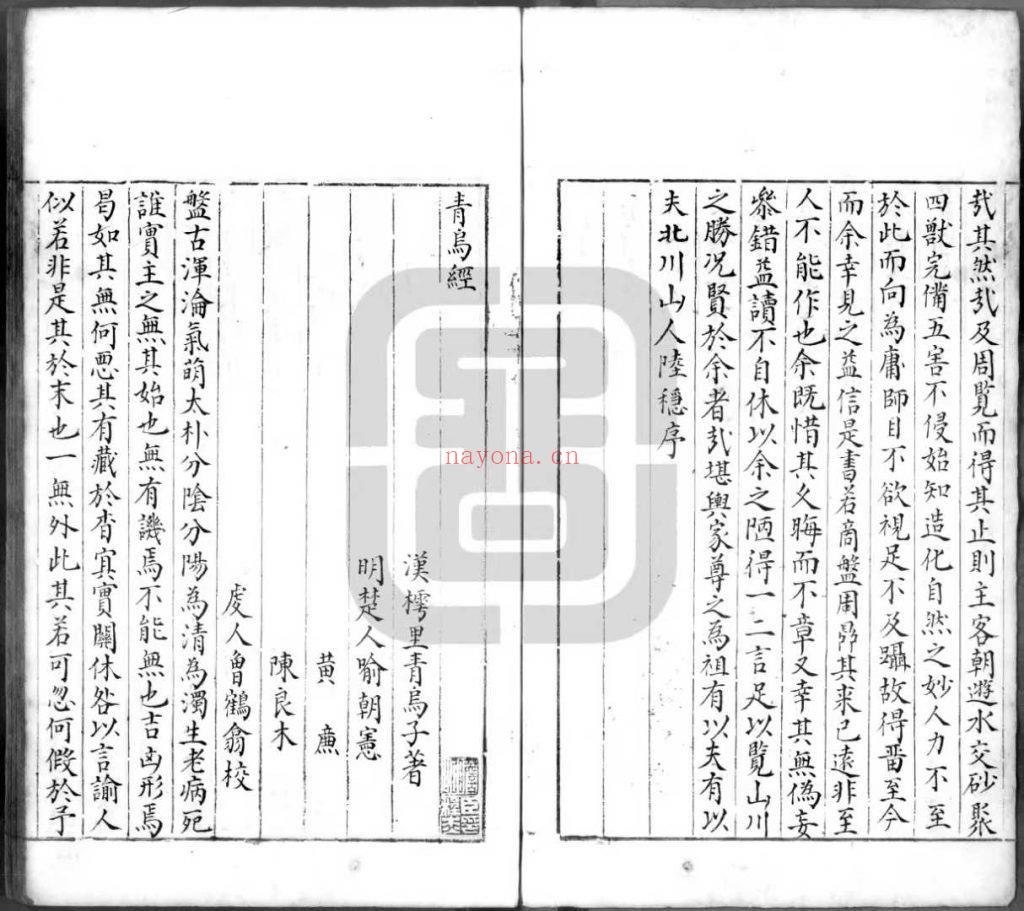 哉其然哉及周覽而得其止則主客朝遊水交砂聚
四獸完備五害不侵始知造化自然之妙人力不至
於此而向為庸師目不欲視足不及躡故得畱至今
而余幸見之益信是書若商盤周鼎其来已遠非至
人不能作也余既惜其久晦而不章又幸其無偽妄
叅錯益讀不自休以余之陋得一二言足以覽山川
之勝况賢於余者哉堪輿家尊之為祖有以夫有以
夫北川山人陸穩序
青烏經
漢樗里青烏子著
明楚人喻朝憲
黄㢘
陳良木
虔人曾鶴翕校
盤古渾淪氣萌太朴分隂分陽為清為濁生老病死
誰實主之無其始也無有議焉不能無也吉凶形焉
曷如其無何惡其有藏於杳冥實關休咎以言諭人
似若非是其於末也一無外此其若可忽何假於予
nayona.cn